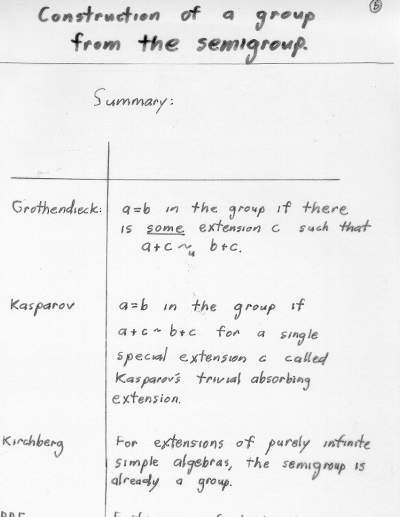 Construction of a group
from the semigroup.
5
Summary:
Grothendieck:
a=b in the group if there
is some extension c such that
a+c ~u b+c.
Kasparov
a=b in the group if
a+c ~ b+c for a single
special extension c called
Kasparov's trivial absorbing
extension.
Kirchberg
For extensions of purely infinite
simple algebras, the semigroup is
already a group.